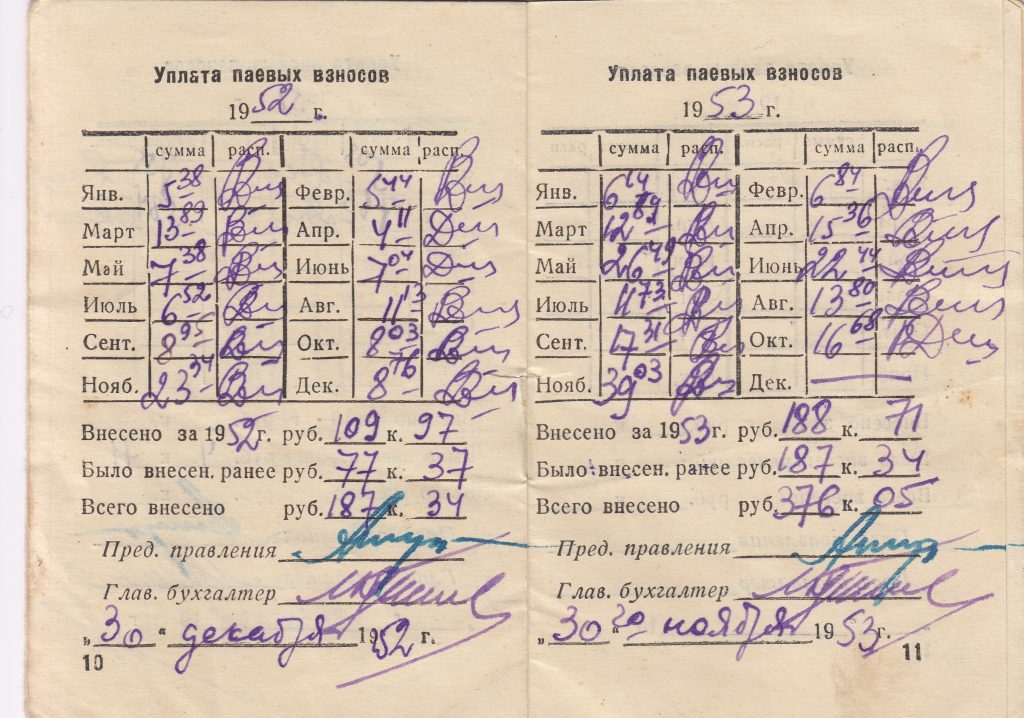 Уплата паевых взносов
1952 г.
сумма расп. сумма расп.
Янв. 5 38 Февр. 5 44
Март 13 89 Апр. 4 11
Май 7 38 Июнь 7 04
Июль 6 52 Авг. 11 13
Сент. 8 95 Окт. 8 03
Нояб. 23 34 Дек. 8 76
Внесено за 1952 г. руб. 109 к. 97
Было внесен. ранее руб. 77 к. 37
Всего внесено руб. 187 к. 34
Пред. правления
Глав. бухгалтер
„30“ декабря 1952 г.
10
Уплата паевых взносов
1953 г.
сумма расп. сумма расп.
Янв. 6 14 Февр. 6 84
Март 12 Апр. 15 36
Май 26 49 Июнь 22 44
Июль 11 73 Авг. 13 80
Сент. 17 31 Окт. 16 68
Нояб. 39 03 Дек. —
Внесено за 1953 г. руб. 188 к. 71
Было внесен. ранее руб. 187 к. 34
Всего внесено руб. 376 к. 05
Пред. правления
Глав. бухгалтер
„30“ го ноября 1953 г.
11